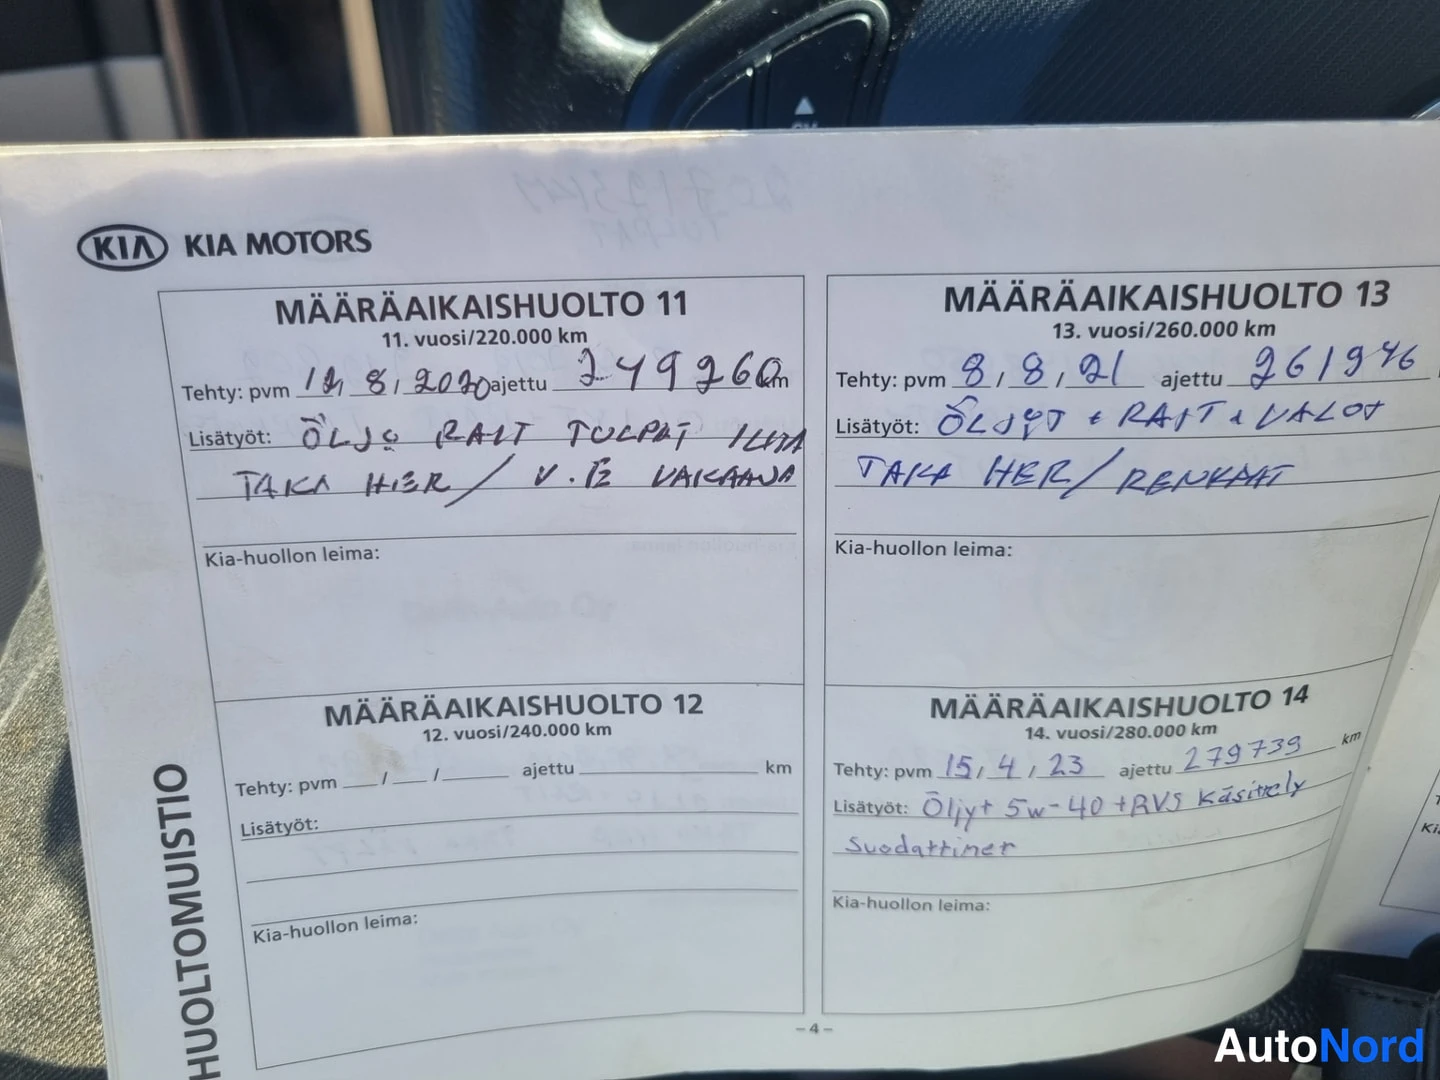 KIA KIA MOTORS
MÄÄRÄAIKAISHUOLTO 11
11. vuosi/220.000 km
Tehty: pvm 12, 8, 2020 ajettu 249260 km
Lisätyöt: ÖLJ RAIT TOLPAT ILMA
TAKA HIER / V.
Kia-huollon leima:
MÄÄRÄAIKAISHUOLTO 12
12. vuosi/240.000 km
Tehty: pvm / / ajettu km
Lisätyöt:
Kia-huollon leima:
MÄÄRÄAIKAISHUOLTO 13
13. vuosi/260.000 km
Tehty: pvm 8, 8, 21 ajettu 261946
Lisätyöt: ÖLJYT + RAIT + VALOT
TAKA HER/ RENKAAT
Kia-huollon leima:
MÄÄRÄAIKAISHUOLTO 14
14. vuosi/280.000 km
Tehty: pvm 15, 4, 23 ajettu 279739 km
Lisätyöt: Öljyt 5w-40 +RVS Käsittely
Suodattiner
Kia-huollon leima:
HUOLTOMUISTIO
- 4 -
AutoNord